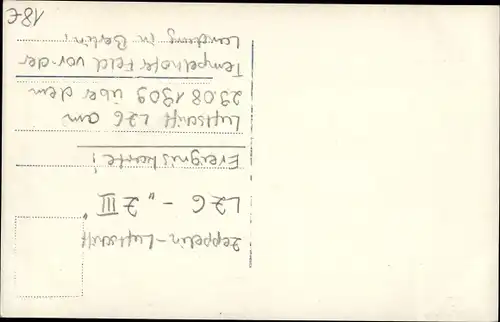 Zeppelin-Luftschiff
LZ 6 - "Z III"
Ereigniskarte!
Luftschiff LZ6 am
29.08.1909 über dem
Tempelhofer Feld vor der
Landung in Berlin!
18€